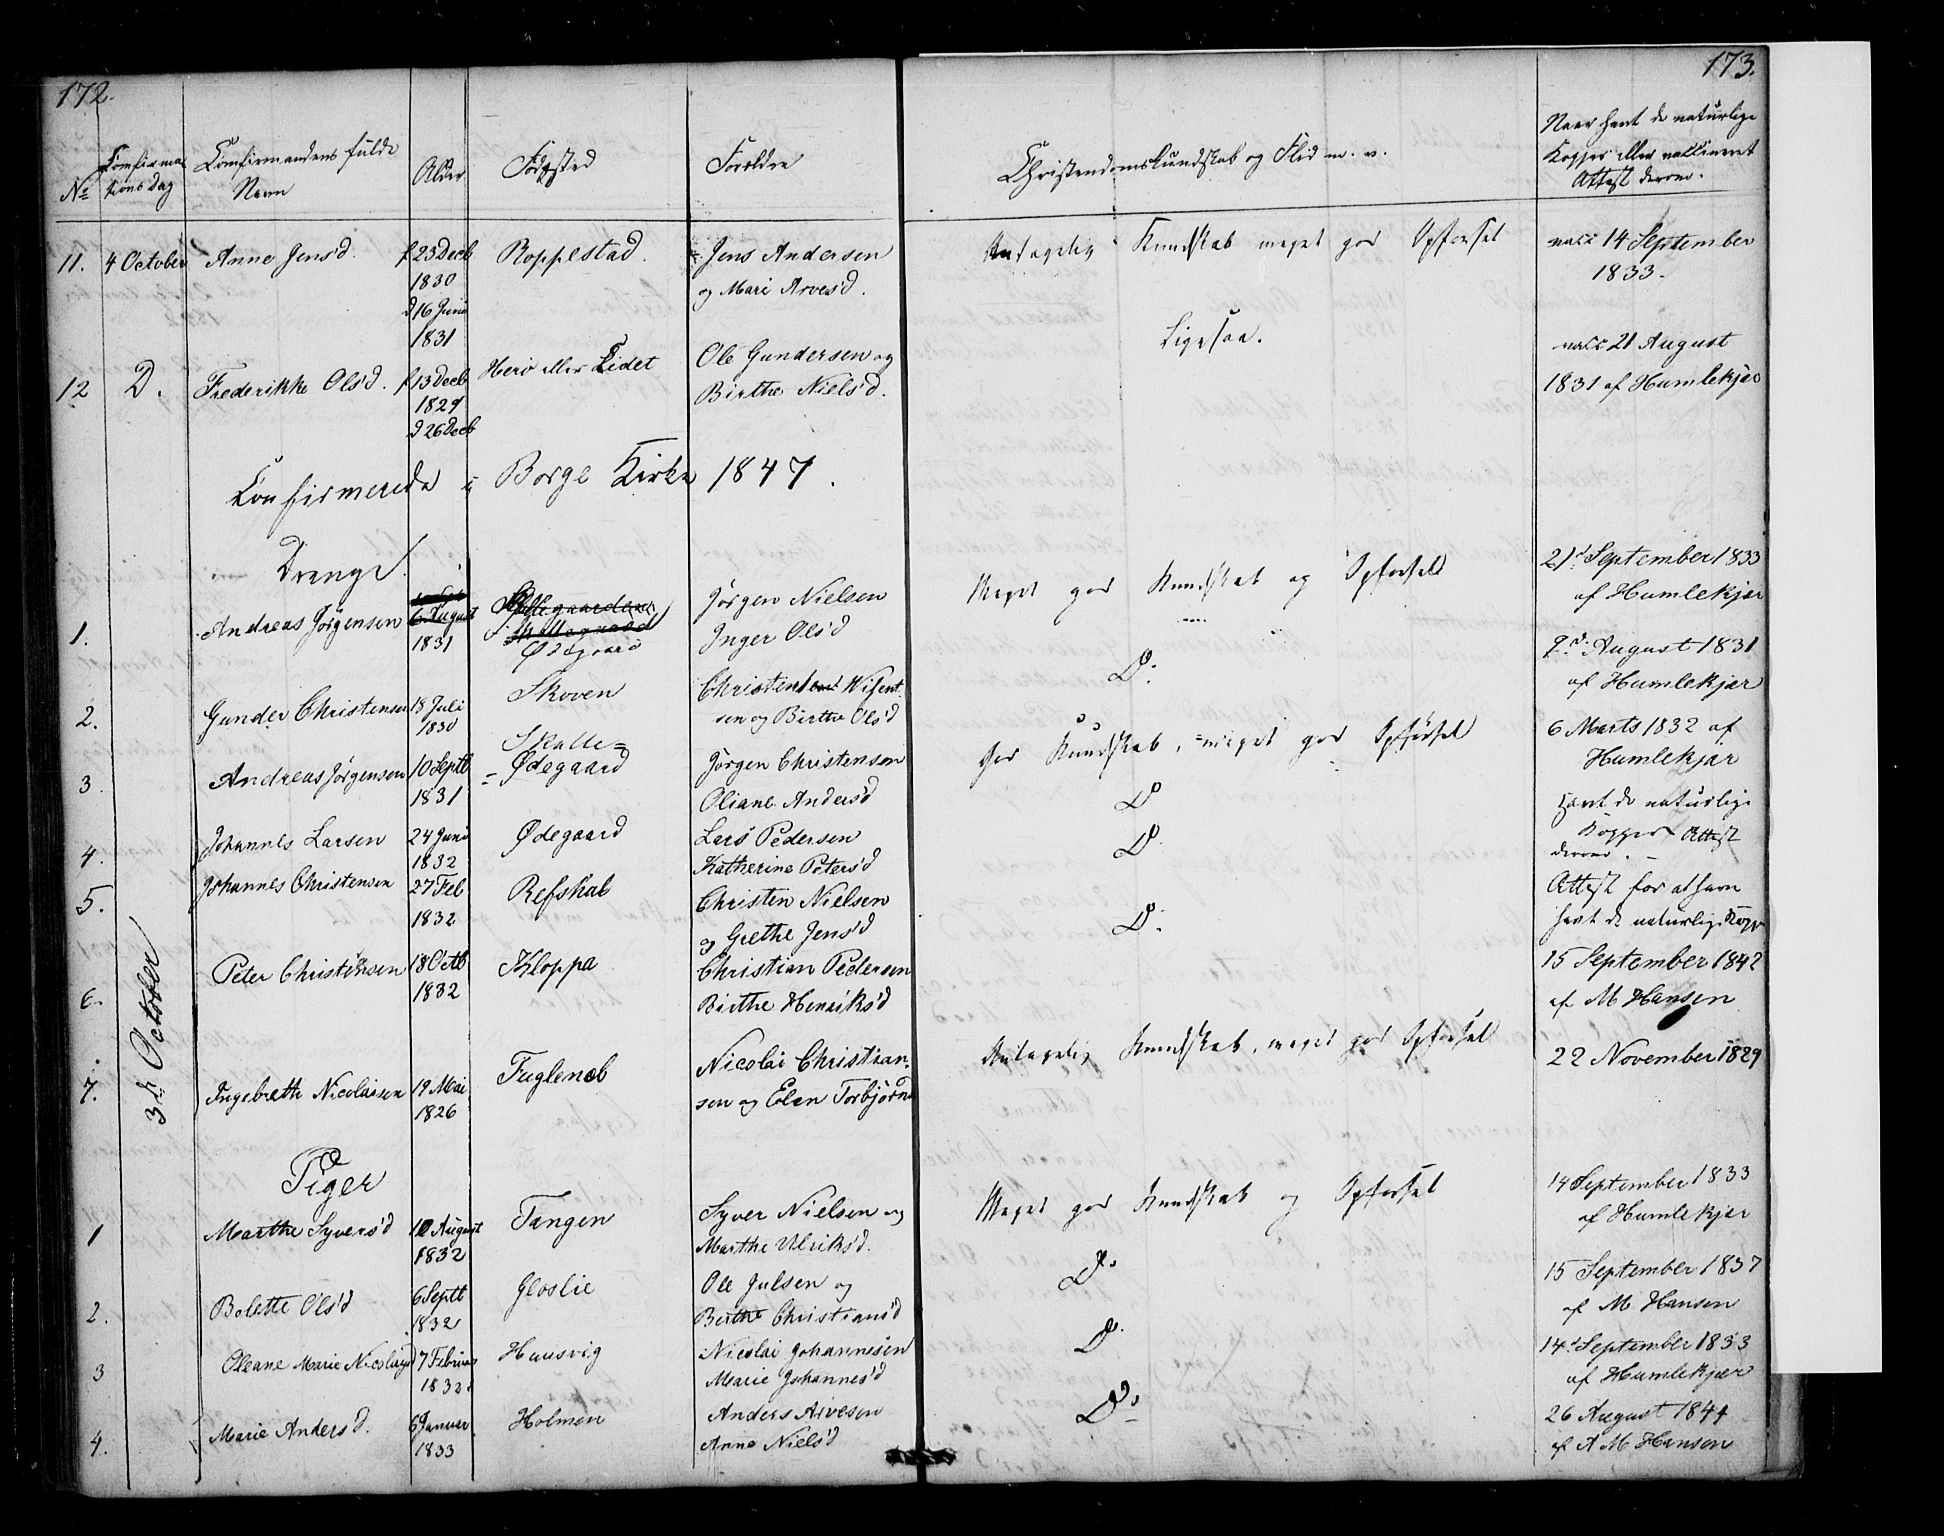 172.
173.
No
Confirma
tions Dag
Confirmandens fulde
Navn
Alder
Fødested
Forældre
Christendomskundskab og Flid m. v.
Naar havt de naturlige
Kopper eller vaccineret
Attest derom.
11. 4 October Anne Jensd. f 23 Decb Roppestad. Jens Andersen Antagelig Kundskab meget god Opførsel vacc 14 September
1830 og Mari Arvesd. 1833.
d 16 Juni
1831
12 D. Frederikke Olsd. f 13 Decb Herø eller Lidet Ole Gundersen og Ligesaa. vacc 21 August
1829 Birthe Nielsd. 1831 af Humlekjær
d 26 Decb
Confirmerede i Borge Kirke 1847.
Drenge
3d October
1. Andreas Jørgensen 6 August Ødegaard Jørgen Nielsen Meget god Kundskab og Opførsel 21d September 1833
1831 Inger Olsd af Humlekjær
2. Gunder Christensen 18 Juli Skoven Christen Wisent D. 9d August 1831
1830 sen og Birthe Olsd af Humlekjær
3. Andreas Jørgensen 10 Septb Skalle= Jørgen Christensen God Kundskab, meget god Opførsel 6 Marts 1832 af
1831 =Ødegaard Oliane Andersd Humlekjær
4. Johannes Larsen 24 Juni Ødegaard Lars Pedersen D Havt de naturlige
1832 Katherine Petersd Kopper Attest
derom.
5. Johannes Christensen 27 Feb Refshal Christen Nielsen D Attest for at have
1832 og Grethe Jensd havt de naturlige Kopp
6. Peter Christensen 18 Octb Kloppa Christian Pedersen D. 15 September 1842
1832 Birthe Henriksd af M Hansen
7. Ingebreth Nicolaisen 19 Mai Fugleneb Nicolai Christian- Antagelig Kundskab, meget god Opførsel 22 November 1829
1826 sen og Elen Torbjørns
Piger
1 Marthe Syversd 10 August Tangen Syver Nielsen og Meget god Kundskab og Opførsel 14 September 1833
1832 Marthe Ulriksd. af Humlekjær
2. Bolette Olsd 6 Septb Gloslie Ole Julsen og D. 15 September 1837
1832 Berthe Christiansd af M Hansen
3 Oleane Marie Nicolaisd 7 Februar Huusvig Nicolai Johannesen D. 14d September 1833
1832 Marie Johannesd af Humlekjær
4. Marie Andersd. 6 Januar Holmen Anders Arvesen D. 26 August 1844
1833 Anne Nielsd af A M Hansen